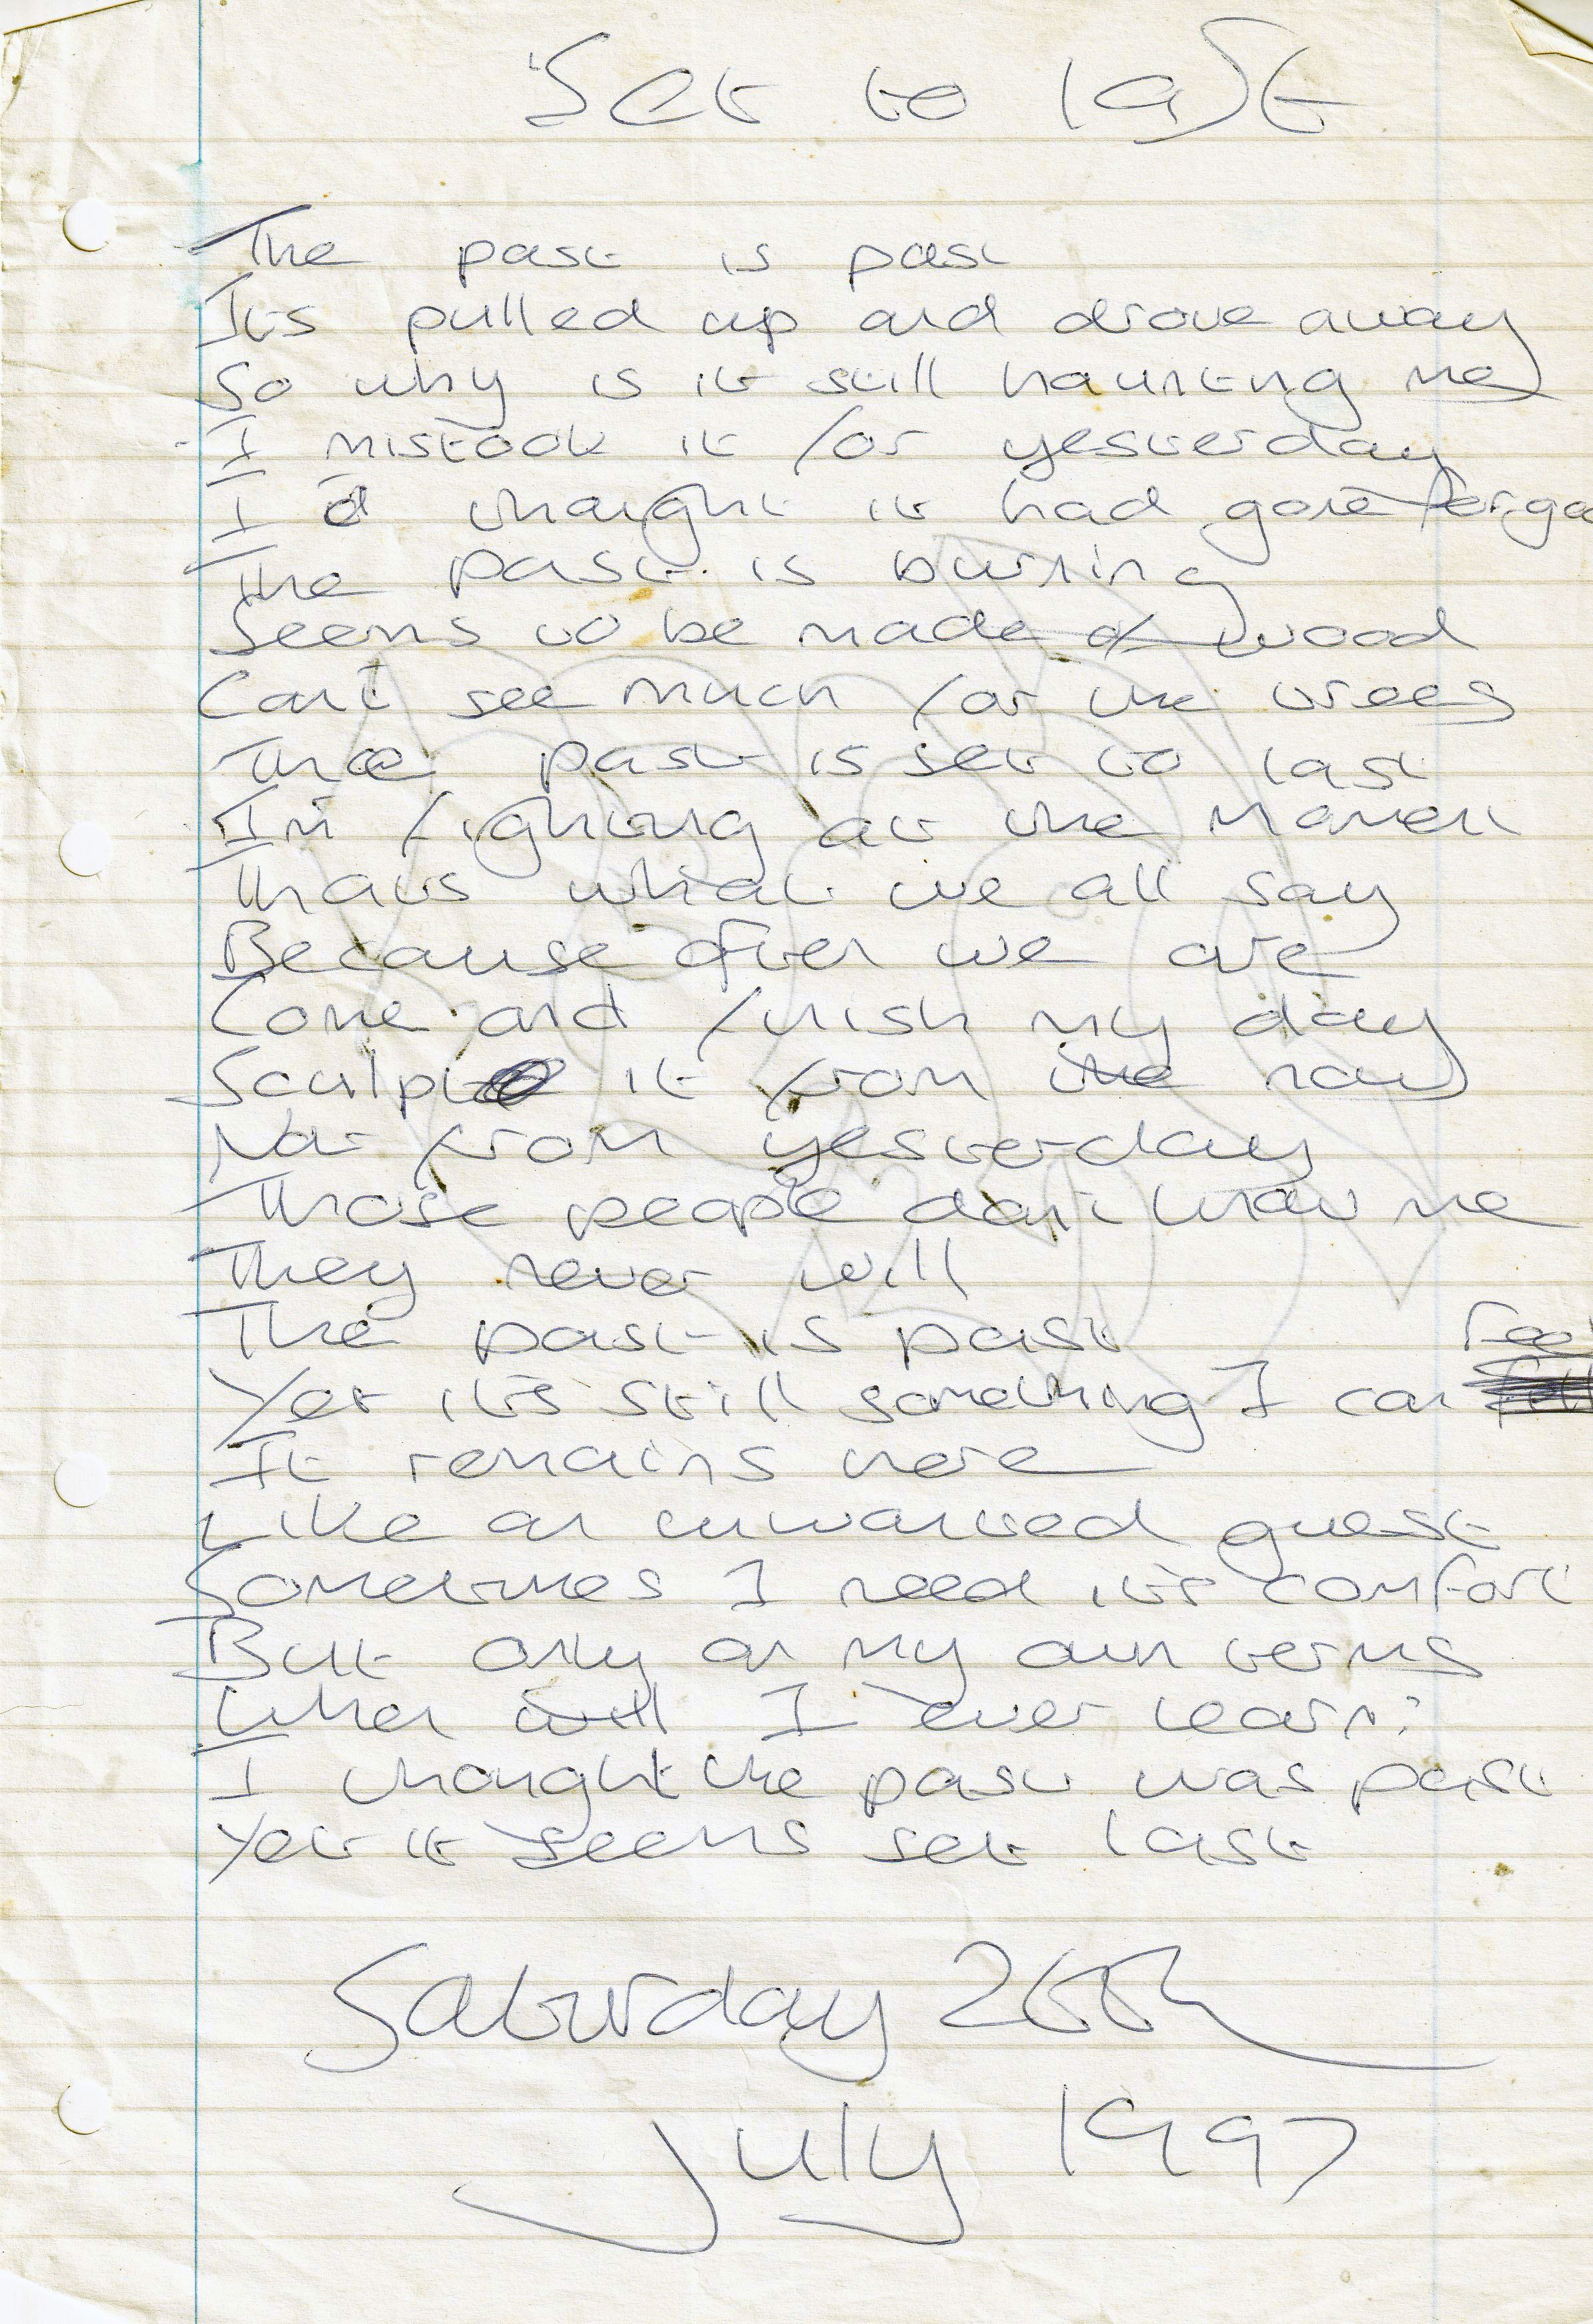 Set to last
The past is past
Its pulled up and drove away
So why is it still haunting me
I mistook it for yesterday
I d thought it had gone for goo
The past is burning
Seems to be made of wood
Cant see much for the trees
The past is set to last
Im fighting at the moment
Thats what we all say
Because often we are
Come and finish my day
Sculpt it from the now
Not from yesterday
Those people dont know me
They never will
The past is past
Yet its still something I can feel
It remains here
Like an unwanted guest
Sometimes I need its comfort
But only on my own terms
When will I ever learn?
I thought the past was past
Yet it seems set last
Saturday 26th
July 1997